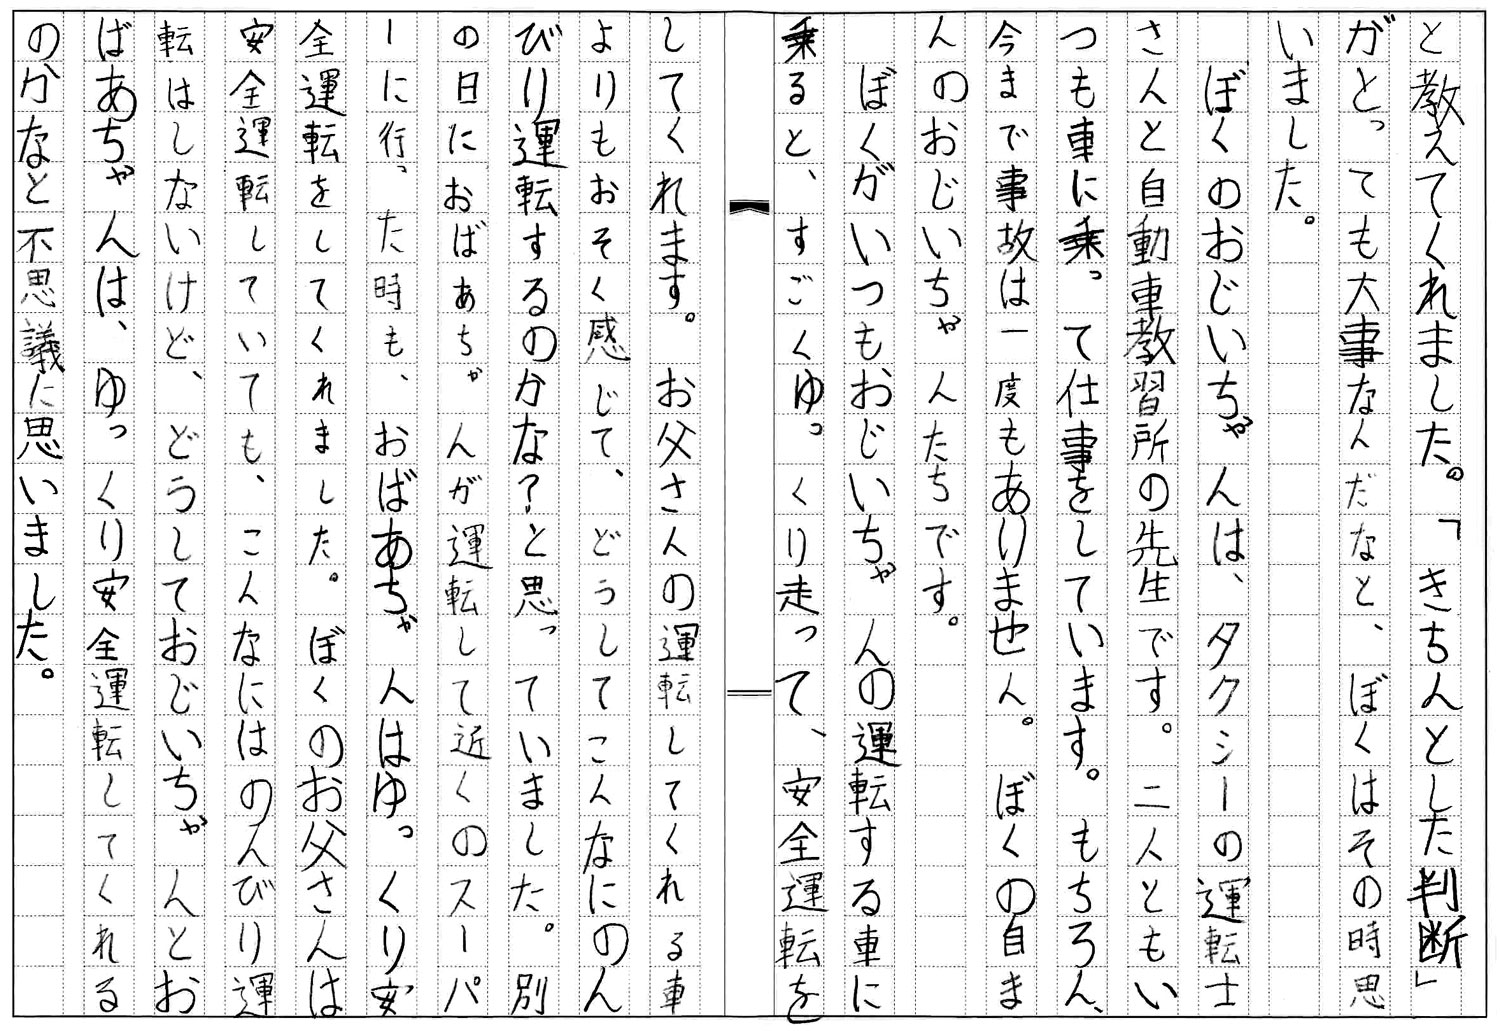 と教えてくれました。「きちんとした判断」
がとっても大事なんだなと、ぼくはその時思
いました。
ぼくのおじいちゃんは、タクシーの運転士
さんと自動車教習所の先生です。二人ともい
つも車に乗って仕事をしています。もちろん、
今まで事故は一度もありません。ぼくの自ま
んのおじいちゃんたちです。
ぼくがいつもおじいちゃんの運転する車に
乗ると、すごくゆっくり走って、安全運転を
してくれます。お父さんの運転してくれる車
よりもおそく感じて、どうしてこんなにのん
びり運転するのかな?と思っていました。別
の日におばあちゃんが運転して近くのスーパ
ーに行った時も、おばあちゃんはゆっくり安
全運転をしてくれました。ぼくのお父さんは
安全運転していても、こんなにはのんびり運
転はしないけど、どうしておじいちゃんとお
ばあちゃんは、ゆっくり安全運転してくれる
のかなと不思議に思いました。